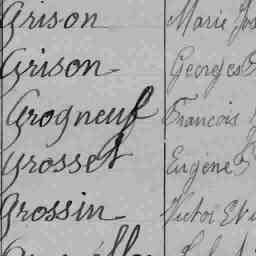 Grison Marie Jos
Grison Georges
Grogneuf François
Grosset Eugène
Grossin Victor Et